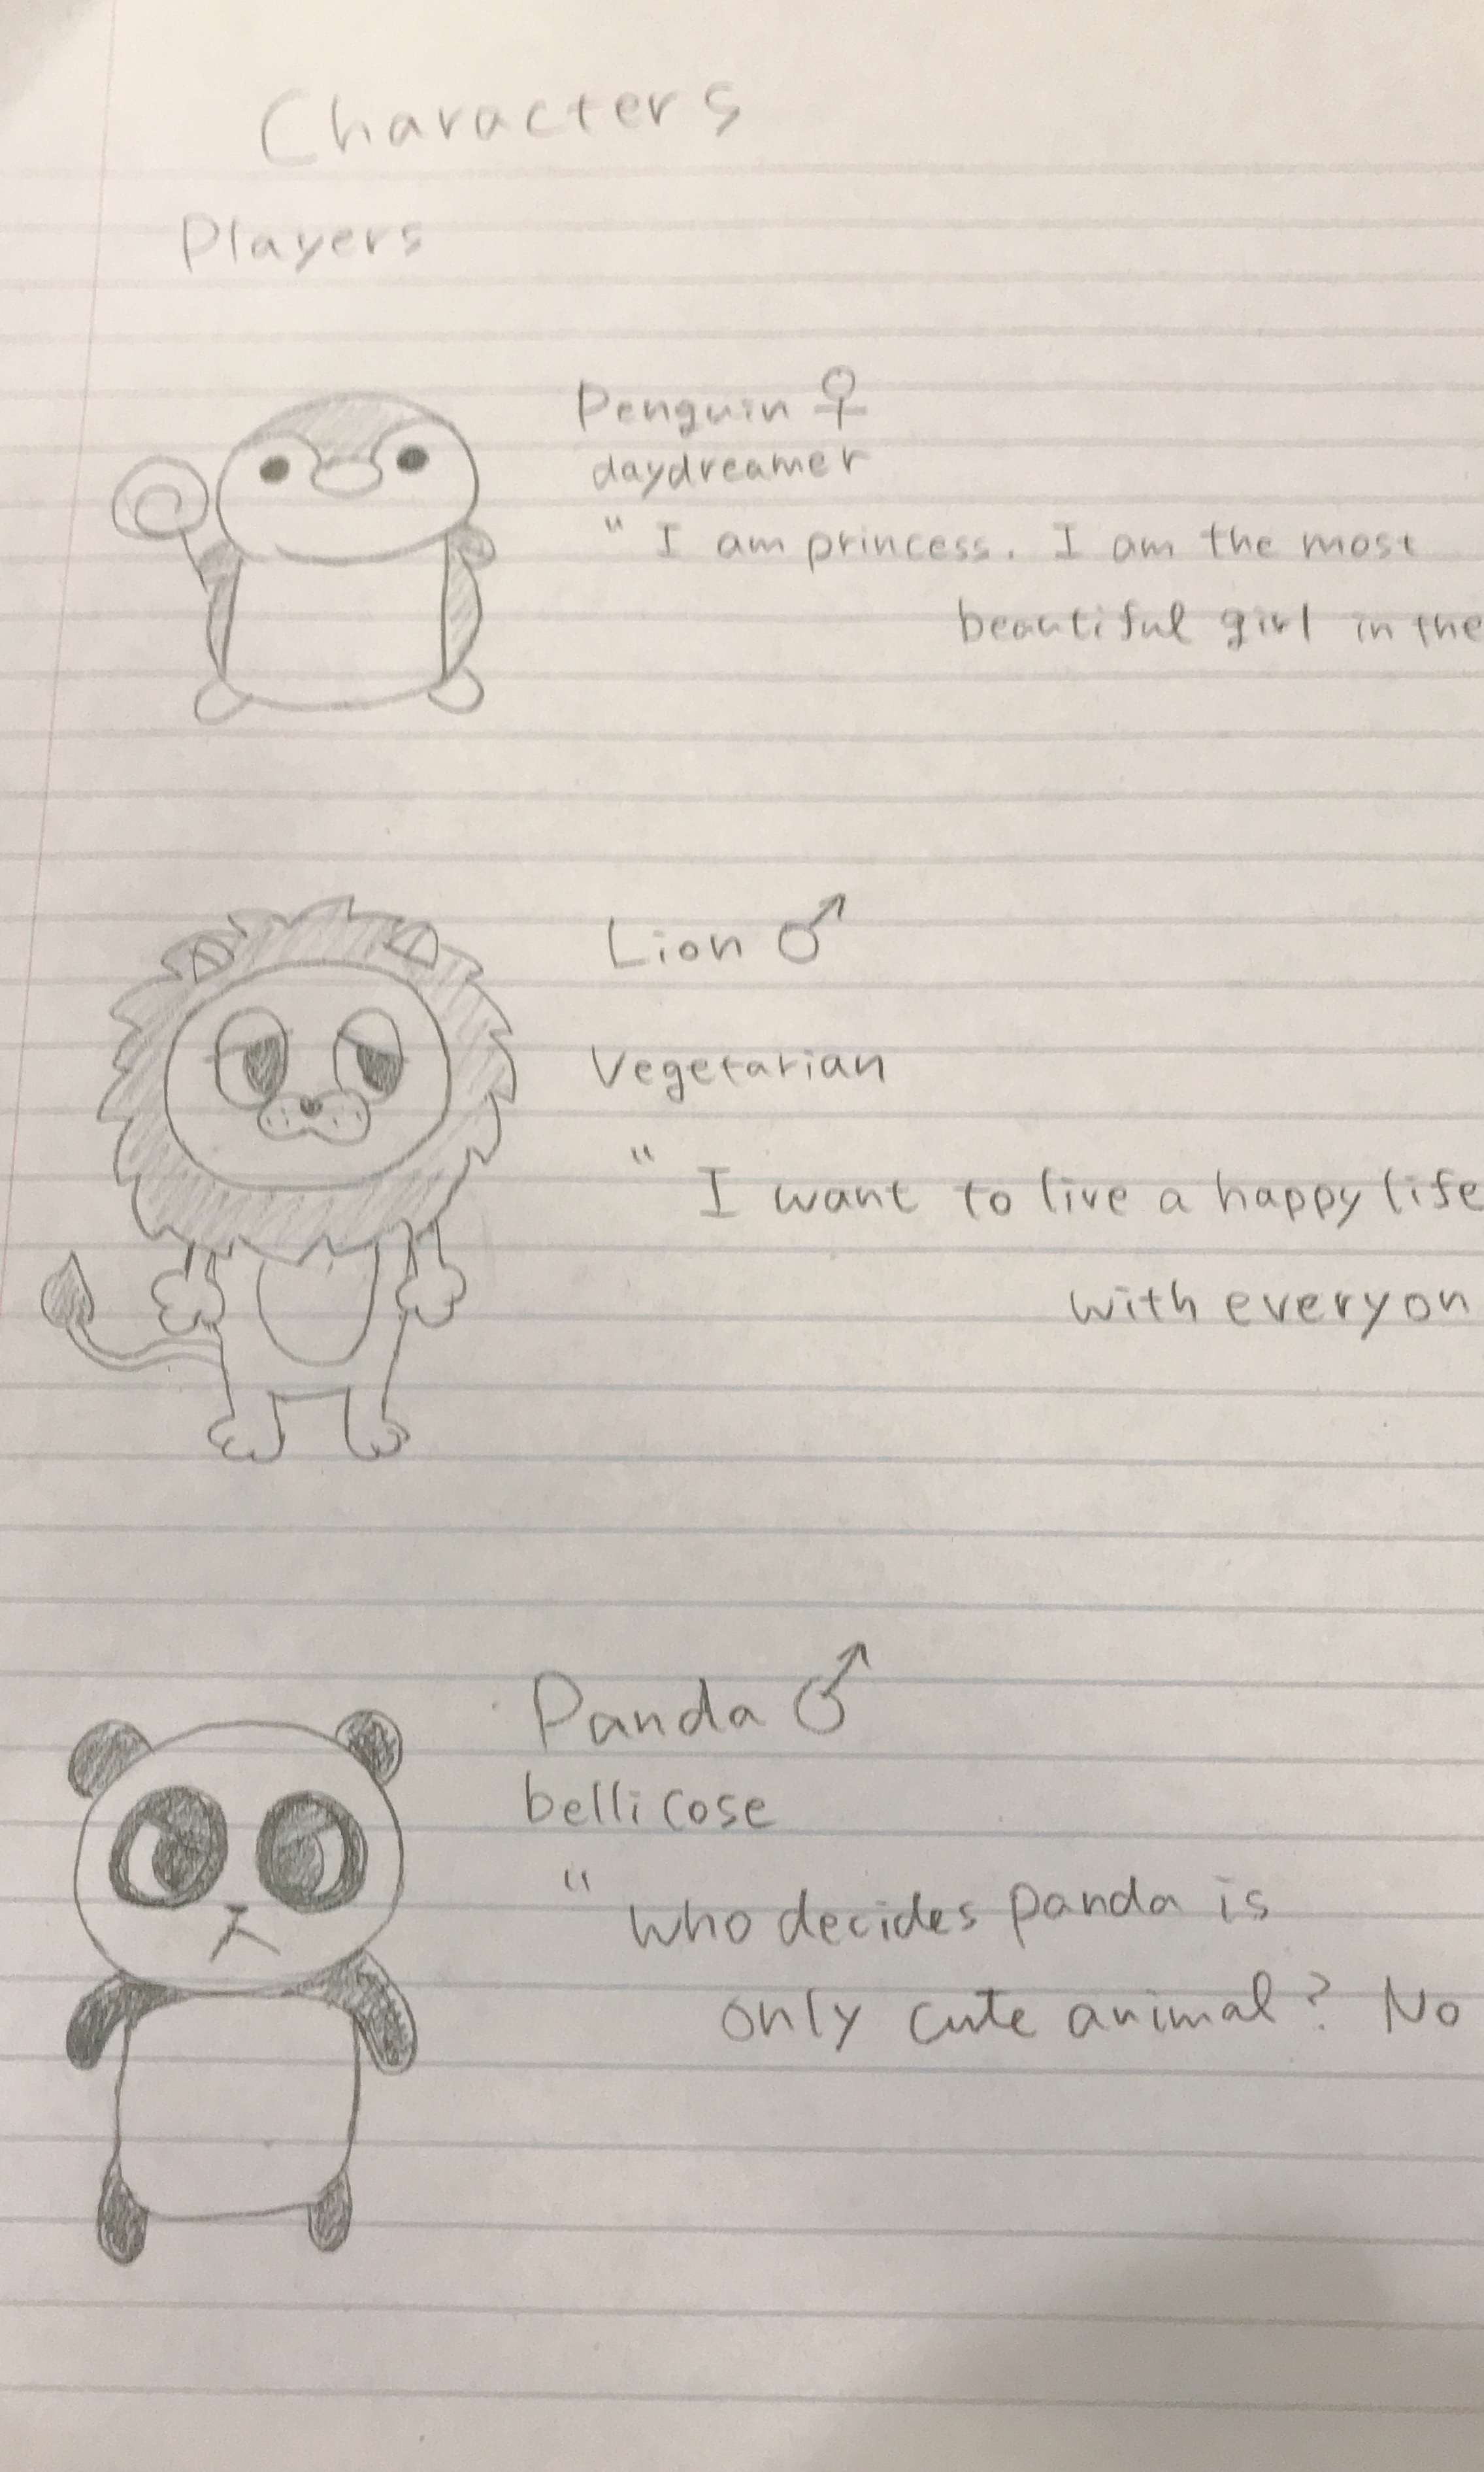 Characters
Players
Penguin ♀
daydreamer
" I am princess. I am the most
beautiful girl in the
Lion ♂
Vegetarian
" I want to live a happy life
with everyon
Panda ♂
bellicose
" who decides panda is
only cute animal? No